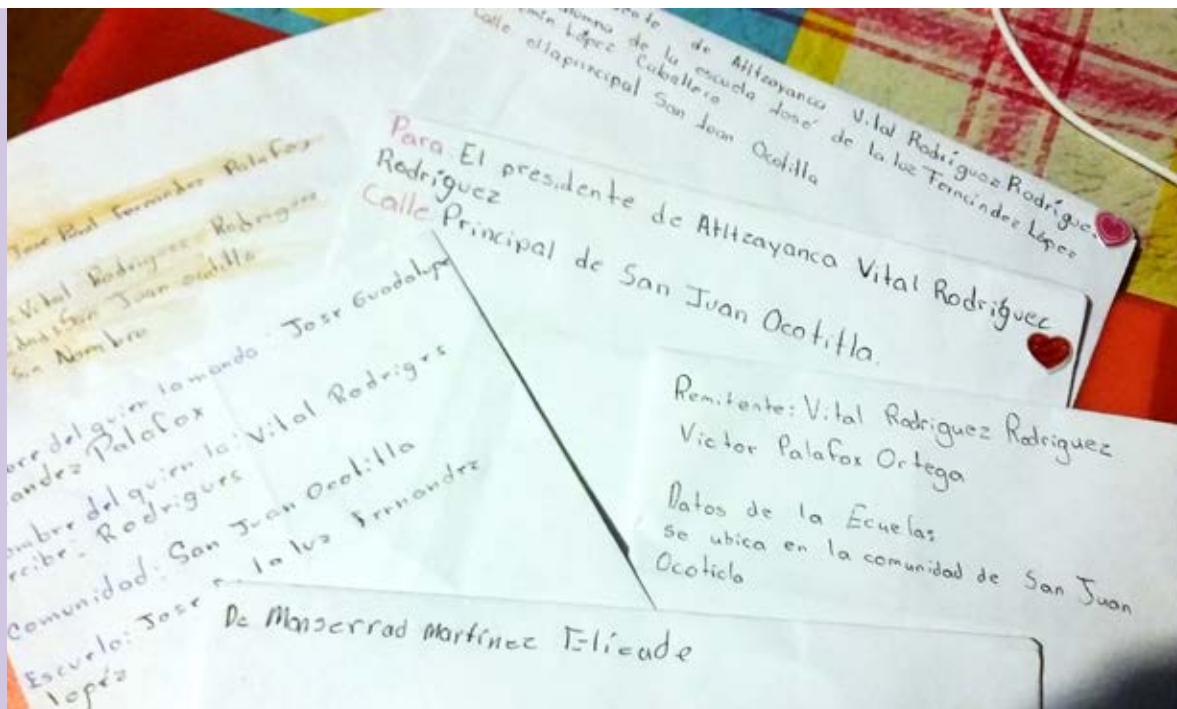 de Atltzayanca Vital Rodríguez Rodríguez
de la escuela José de la luz Fernández López
López Caballero
Calle San Juan Ocotitla
Para El presidente de Atltzayanca Vital Rodríguez
Rodríguez
Calle Principal de San Juan Ocotitla.
Jose Fernandez Palafox
Vital Rodriguez Rodriguez
San Juan ocotitla
Sin Nombre
del quien lo manda: Jose Guadalupe
andez Palafox
ombre del quien lo: Vital Rodrigrs
recibe- Rodrigues
Comunidad: San Juan Ocotitla
Escuela: Jose la luz Fernandez
lopéz
Remitente: Vital Rodriguez Rodriguez
Victor Palafox Ortega
Datos de la Ecuelas
se ubica en la comunidad de San Juan
Ocoticla
De Monserrad Martínez Elicade